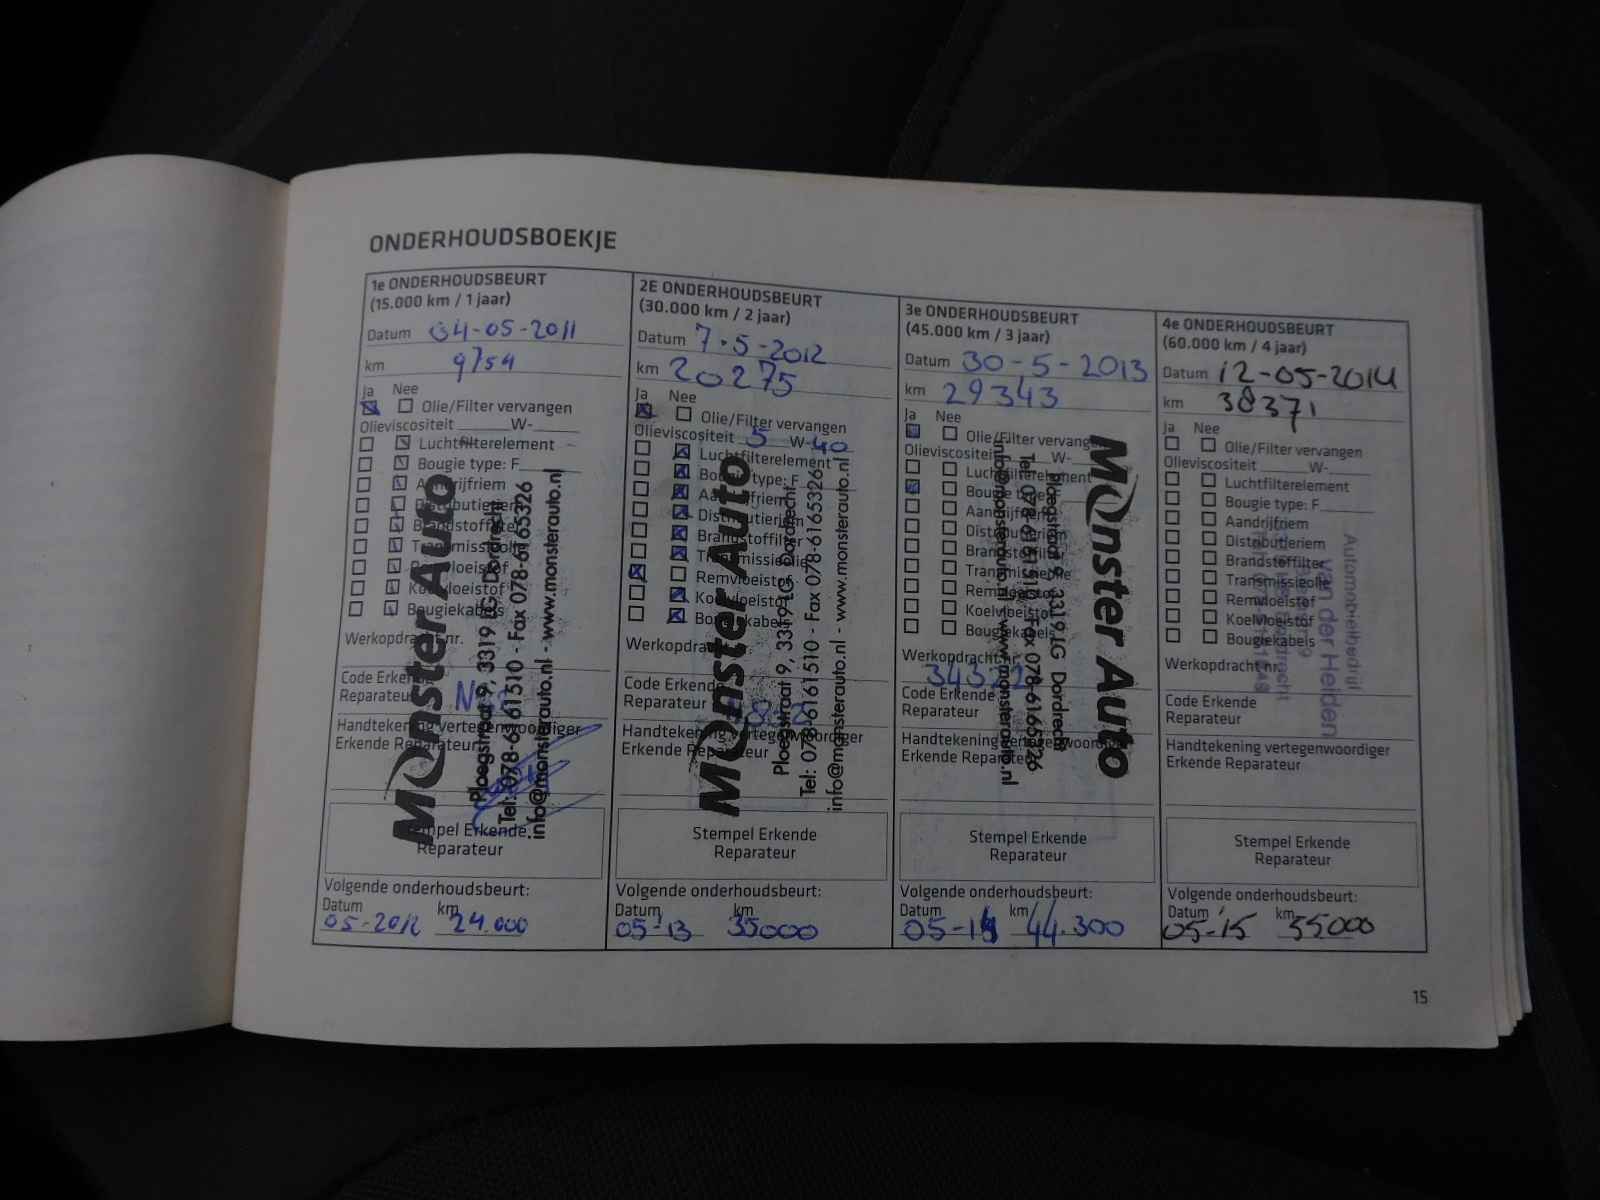 ONDERHOUDSBOEKJE
1e ONDERHOUDSBEURT
(15.000 km / 1 jaar)
Datum 04-05-2011
km 9754
Ja Nee
Olie/Filter vervangen
Olieviscositeit W-
Luchtfilterelement
Bougie type: F
Aandrijfriem
Distributieriem
Brandstoffilter
Transmissieolie
Remvloeistof
Koelvloeistof
Bougiekabels
Werkopdracht nr.
Code Erkende
Reparateur
Handtekening vertegenwoordiger
Erkende Reparateur
Monster Auto
Ploegstraat 9, 3319 LG Dordrecht
Tel: 078-6161510 - Fax 078-6165326
info@monsterauto.nl - www.monsterauto.nl
Stempel Erkende
Reparateur
Volgende onderhoudsbeurt:
Datum km
05-2012 24.000
2E ONDERHOUDSBEURT
(30.000 km / 2 jaar)
Datum 7-5-2012
km 20275
Ja Nee
Olie/Filter vervangen
Olieviscositeit 5 W-40
Luchtfilterelement
Bougie type: F
Aandrijfriem
Distributieriem
Brandstoffilter
Transmissieolie
Remvloeistof
Koelvloeistof
Bougiekabels
Werkopdracht
Code Erkende
Reparateur
Handtekening vertegenwoordiger
Erkende Reparateur
Monster Auto
Ploegstraat 9, 3319 LG Dordrecht
Tel: 078-6161510 - Fax 078-6165326
info@monsterauto.nl - www.monsterauto.nl
Stempel Erkende
Reparateur
Volgende onderhoudsbeurt:
Datum km
05-13 35000
3e ONDERHOUDSBEURT
(45.000 km / 3 jaar)
Datum 30-5-2013
km 29343
Ja Nee
Olie/Filter vervangen
Olieviscositeit W-
Luchtfilterelement
Bougie type
Aandrijfriem
Distributieriem
Brandstoffilter
Transmissieolie
Remvloeistof
Koelvloeistof
Bougiekabels
Werkopdracht nr.
34322
Code Erkende
Reparateur
Handtekening vertegenwoordiger
Erkende Reparateur
Monster Auto
Ploegstraat 9, 3319 LG Dordrecht
Tel: 078-6161510 - Fax 078-6165326
info@monsterauto.nl - www.monsterauto.nl
Stempel Erkende
Reparateur
Volgende onderhoudsbeurt:
Datum km
05-14 44.300
4e ONDERHOUDSBEURT
(60.000 km / 4 jaar)
Datum 12-05-2014
km 38371
Ja Nee
Olie/Filter vervangen
Olieviscositeit W-
Luchtfilterelement
Bougie type: F
Aandrijfriem
Distributieriem
Brandstoffilter
Transmissieolie
Remvloeistof
Koelvloeistof
Bougiekabels
Werkopdracht nr.
Code Erkende
Reparateur
Handtekening vertegenwoordiger
Erkende Reparateur
Automobielbedrijf
van der Heijden
Stempel Erkende
Reparateur
Volgende onderhoudsbeurt:
Datum km
05-15 55000
15